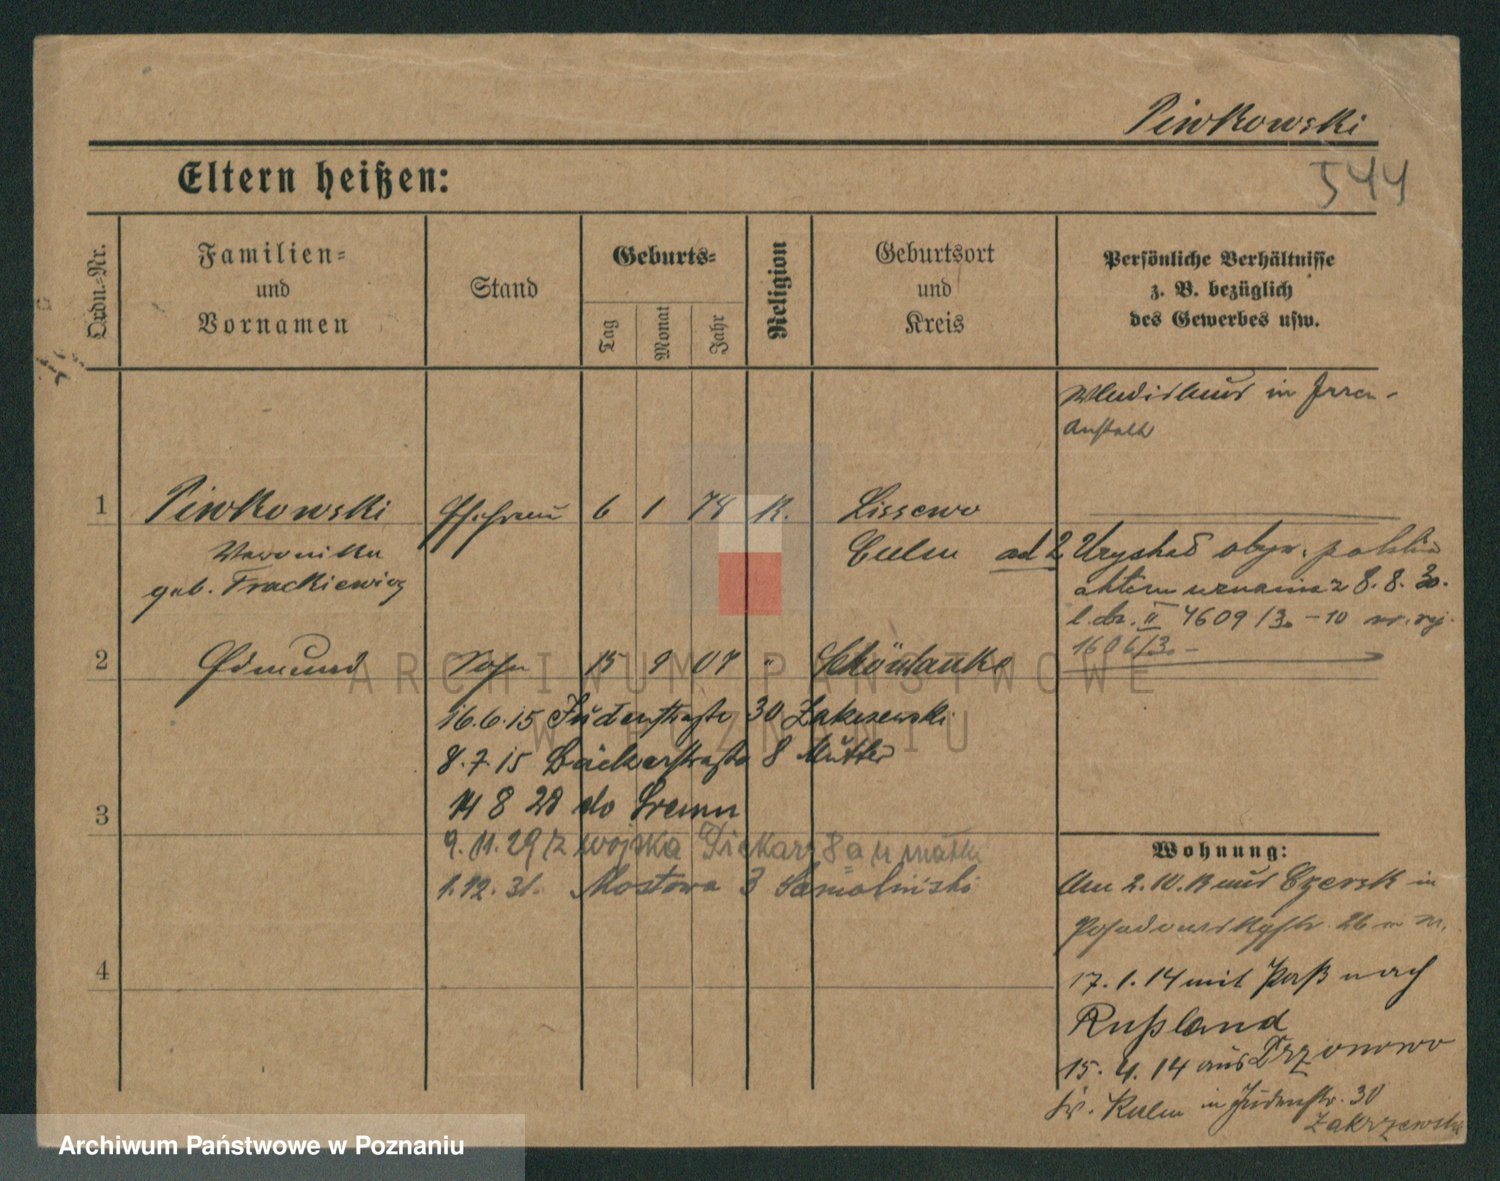 Piwkowski
544
Eltern heißen:
Ordn.=Nr.
Familien=
und
Vornamen
Stand
Geburts=
Tag
Monat
Jahr
Religion
Geburtsort
und
Kreis
Persönliche Verhältnisse
z. B. bezüglich
des Gewerbes usw.
in Irren-
Anstalt
1 Piwkowski Ehefrau 6 1 78 K. Lissewo
Veronika
geb. Frackiewicz
Culm ad 2
obyw.
8. 8. 30.
II 4609/30 - 10
1606/30 -
2 Edmund Sohn 15 9 07 " Schönlanke
16.6.15 Judenstraße 30 Zakrzewski
8.7.15 Bäckerstraße 8 Mutter
3
14 8 28 do Śremu
9.11.29 z wojska Piekary 8a u matki
1.12.31. Mostowa 3
4
Wohnung:
Am 2.10.13 aus Czersk in
17.1.14 mit Paß nach
Rußland
15.4.14 aus Trzonowo
Kr. Kulm in Judenstr. 30
Zakrzewski
ARCHIWUM PAŃSTWOWE
W POZNANIU
Archiwum Państwowe w Poznaniu